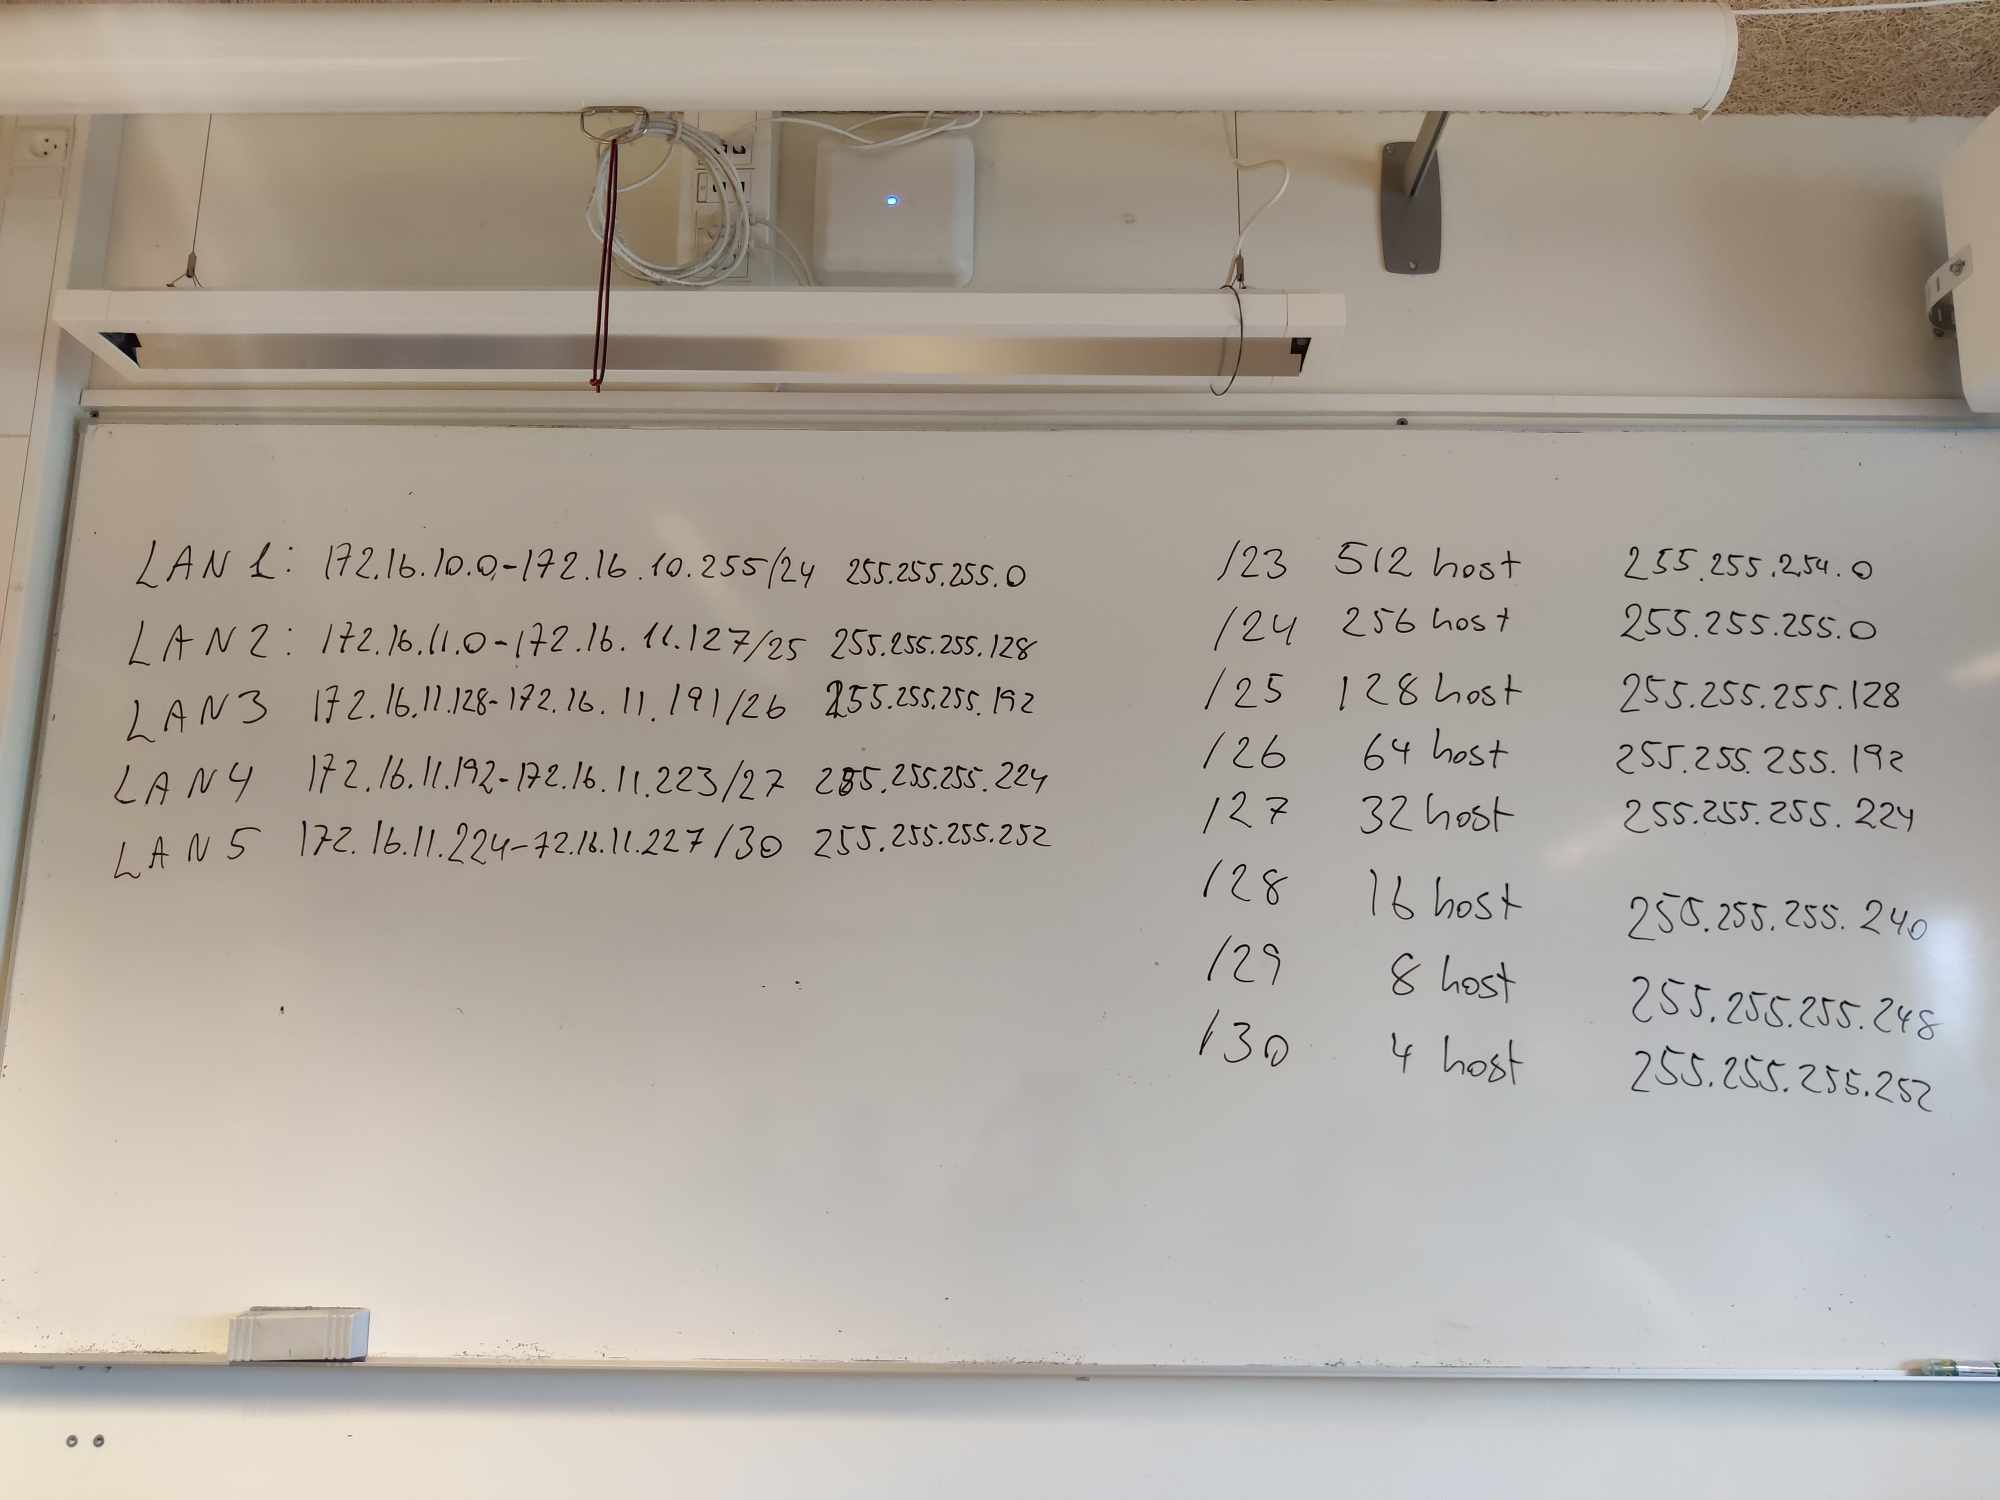 LAN 1: 172.16.10.0-172.16.10.255/24 255.255.255.0
LAN 2: 172.16.11.0-172.16.11.127/25 255.255.255.128
LAN 3 172.16.11.128-172.16.11.191/26 255.255.255.192
LAN 4 172.16.11.192-172.16.11.223/27 255.255.255.224
LAN 5 172.16.11.224-72.16.11.227/30 255.255.255.252
/23 512 host 255.255.254.0
/24 256 host 255.255.255.0
/25 128 host 255.255.255.128
/26 64 host 255.255.255.192
/27 32 host 255.255.255.224
/28 16 host 250.255.255.240
/29 8 host 255.255.255.248
/30 4 host 255.255.255.252